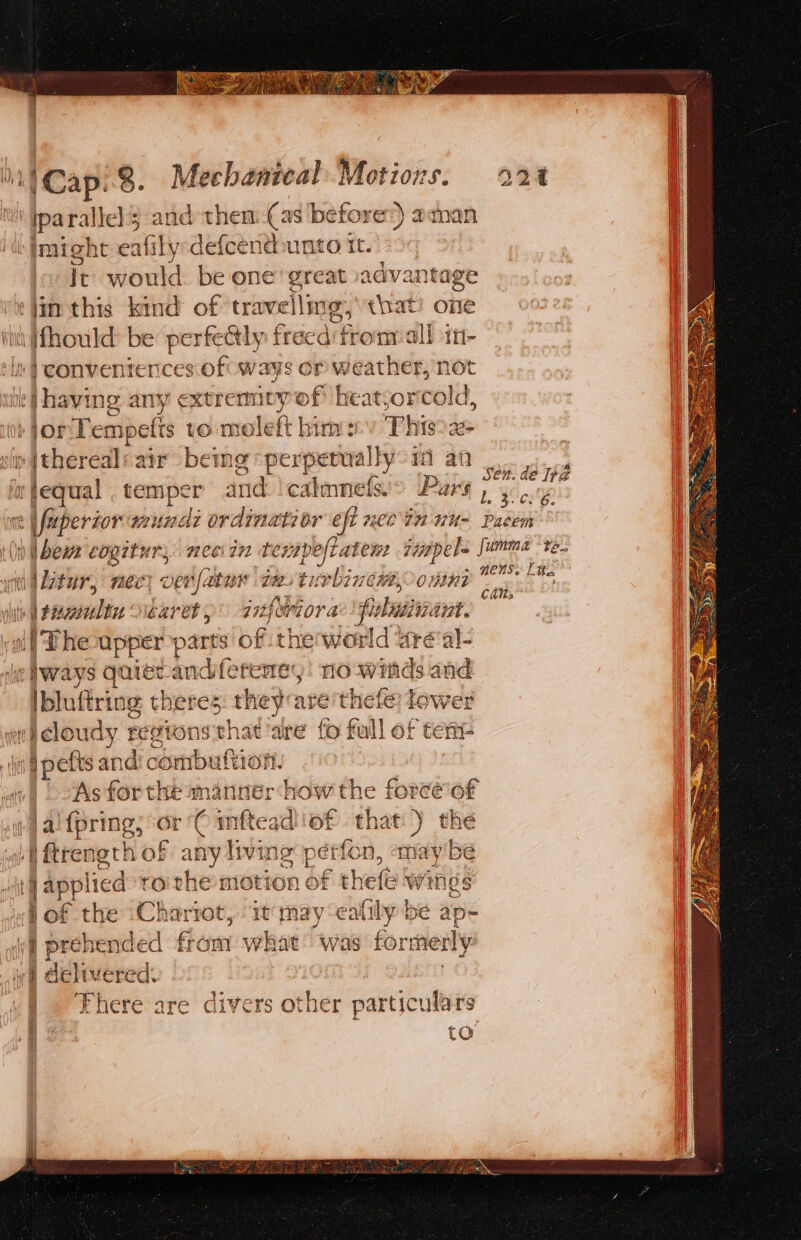 Cap. 8. Mechanical Motions. 221
parallel; and then (as before) a man
might eaſily deſcend unto it.
It would be one great advantage
in this kind of travelling, that one
ſhould be perfectly freed from all in-
conveniences of ways or weather, not
having any extremity of heat or cold,
or Tempeſts to moleſt him: This æ-
thereal air being perpetually in an
equal temper and calmneſs. Pars
ſuperior mundi ordinatior eſt nec in nu-
bem cogitur, nec in tempeſtatem impel-
litur, nec verſatur in turbinem, omni
tumultu caret, inferiora fulminant.
Sen. de Ira
l. 3. c. 6.
Pacem
ſumma te-
nens. Lu-
can.
The upper parts of the world are al-
ways quiet and ſerene, no winds and
bluſtring there; they are theſe lower
cloudy regions that are ſo full of tem-
peſts and combuſtion.
As for the manner how the force of
a ſpring, or (inſtead of that) the
ſtrength of any living perſon, may be
applied to the motion of theſe wings
of the Chariot, it may eaſily be ap-
prehended from what was formerly
delivered.
There are divers other particulars
to